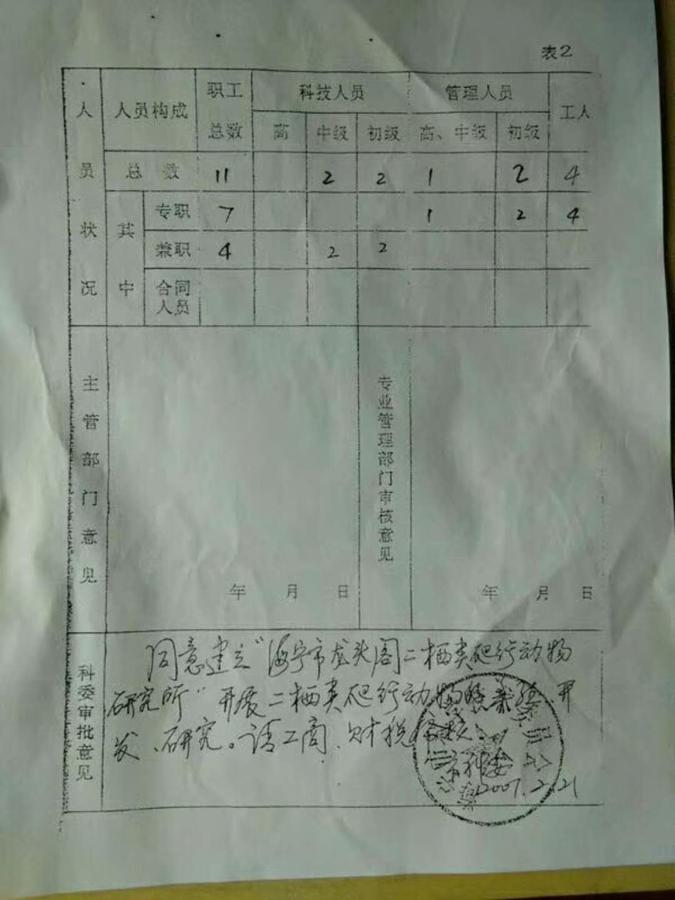 表2
人员状况 人员构成 职工总数 科技人员 管理人员 工人
高 中级 初级 高、中级 初级
总数 11 2 2 1 2 4
其中 专职 7 1 2 4
兼职 4 2 2
合同人员
主管部门意见 专业管理部门审核意见
年 月 日 年 月 日
科委审批意见
同意建立“海宁市龙头阁二栖类爬行动物
研究所”开展二栖类爬行动物 开
发、研究。请工商、财税
2007.2.21